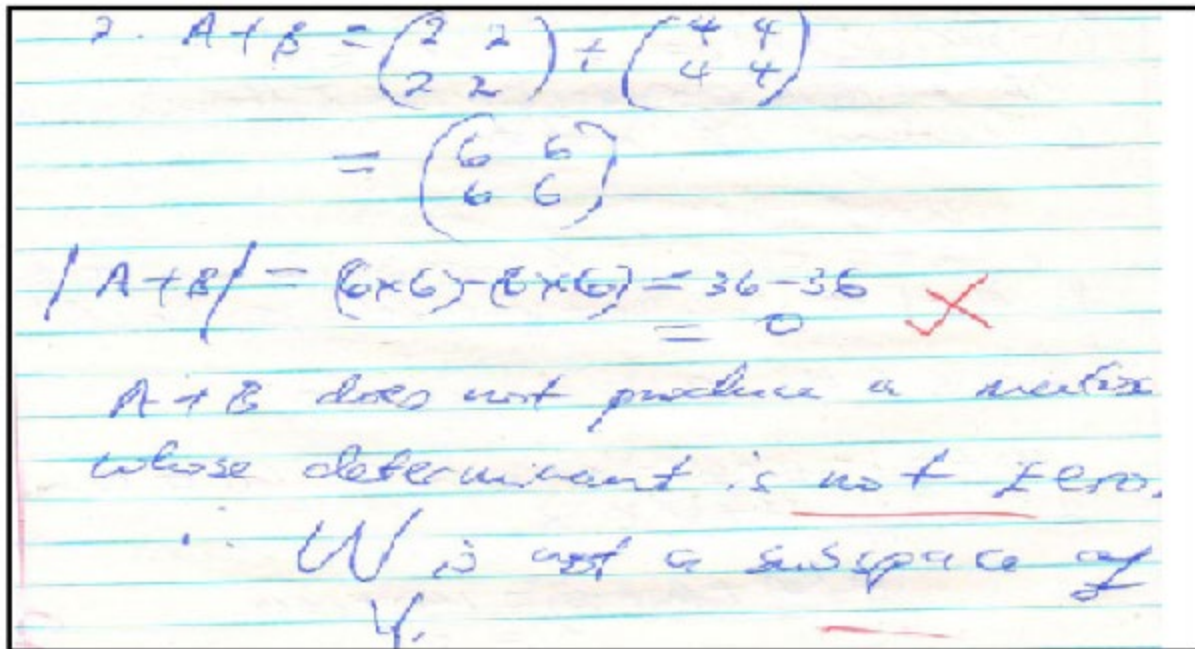 2. A+B = (2 2 2 2) + (4 4 4 4)
= (6 6 6 6)
|A+B| = (6×6)-(6×6) = 36-36
= 0
A+B does not produce a matrix
whose determinant is not zero.
∴ W is not a subspace of
V.